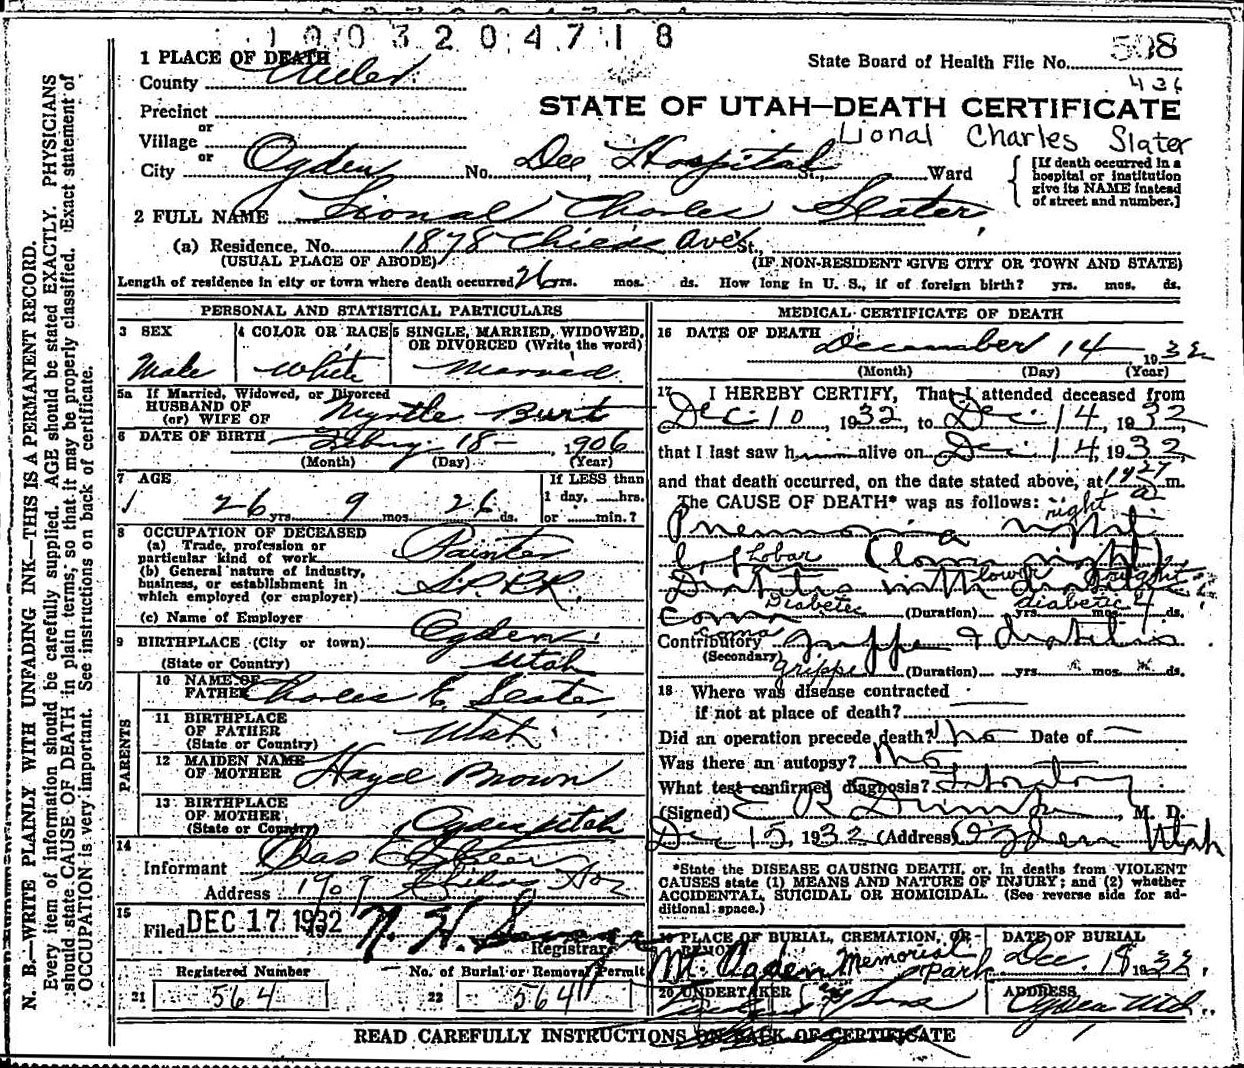 1003204718
1 PLACE OF DEATH
County Weber
State Board of Health File No. 508
436
Precinct
or
Village
or
City Ogden No. Dee Hospital St., Ward
STATE OF UTAH—DEATH CERTIFICATE
Lional Charles Slater
[If death occurred in a hospital or institution give its NAME instead of street and number.]
2 FULL NAME Lional Charles Slater
(a) Residence. No. 1878 Ave St.,
(USUAL PLACE OF ABODE) (IF NON-RESIDENT GIVE CITY OR TOWN AND STATE)
Length of residence in city or town where death occurred 26 yrs. mos. ds. How long in U. S., if of foreign birth? yrs. mos. ds.
PERSONAL AND STATISTICAL PARTICULARS
3 SEX
Male
4 COLOR OR RACE
White
5 SINGLE, MARRIED, WIDOWED, OR DIVORCED (Write the word)
Married
5a If Married, Widowed, or Divorced
HUSBAND OF
(or) WIFE OF Myrtle Burt
6 DATE OF BIRTH Febry. 18 1906
(Month) (Day) (Year)
7 AGE
26 yrs. 9 mos. 26 ds.
If LESS than
1 day, hrs.
or min.?
8 OCCUPATION OF DECEASED
(a) Trade, profession or
particular kind of work Painter
(b) General nature of industry,
business, or establishment in
which employed (or employer) S.P.R.R.
(c) Name of Employer
9 BIRTHPLACE (City or town) Ogden
(State or Country) Utah
PARENTS
10 NAME OF
FATHER Charles E. Slater
11 BIRTHPLACE
OF FATHER
(State or Country) Utah
12 MAIDEN NAME
OF MOTHER Hazel Brown
13 BIRTHPLACE
OF MOTHER
(State or Country) Ogden Utah
14
Informant Chas E
Address 1909
15
Filed DEC 17 1932 N. H.
Registrar
Registered Number
21 564
No. of Burial or Removal Permit
22 564
MEDICAL CERTIFICATE OF DEATH
16 DATE OF DEATH December 14 1932
(Month) (Day) (Year)
17 I HEREBY CERTIFY, That I attended deceased from
Dec 10, 1932, to Dec 14, 1932,
that I last saw h alive on Dec 14, 1932,
and that death occurred, on the date stated above, at m.
The CAUSE OF DEATH* was as follows:
right
Pneumonia right
Lobar
lower
Diabetes diabetic
Coma (Duration) yrs. mos. 4 ds.
Coma
Contributory Grippe & diabetes
(Secondary) grippe (Duration) yrs. mos. ds.
18 Where was disease contracted
if not at place of death?
Did an operation precede death? no Date of
Was there an autopsy? no
What test confirmed diagnosis? History
(Signed) E R , M. D.
Dec 15, 1932 (Address) Ogden Utah
*State the DISEASE CAUSING DEATH, or, in deaths from VIOLENT
CAUSES state (1) MEANS AND NATURE OF INJURY; and (2) whether
ACCIDENTAL, SUICIDAL OR HOMICIDAL. (See reverse side for ad-
ditional space.)
19 PLACE OF BURIAL, CREMATION, OR
Mt. Ogden Memorial Park
DATE OF BURIAL
Dec. 18 1932
20 UNDERTAKER
& Sons
ADDRESS
Ogden Utah
READ CAREFULLY INSTRUCTIONS ON BACK OF CERTIFICATE
N. B.—WRITE PLAINLY WITH UNFADING INK—THIS IS A PERMANENT RECORD.
Every item of information should be carefully supplied. AGE should be stated EXACTLY. PHYSICIANS
should state CAUSE OF DEATH in plain terms, so that it may be properly classified. Exact statement of
OCCUPATION is very important. See instructions on back of certificate.